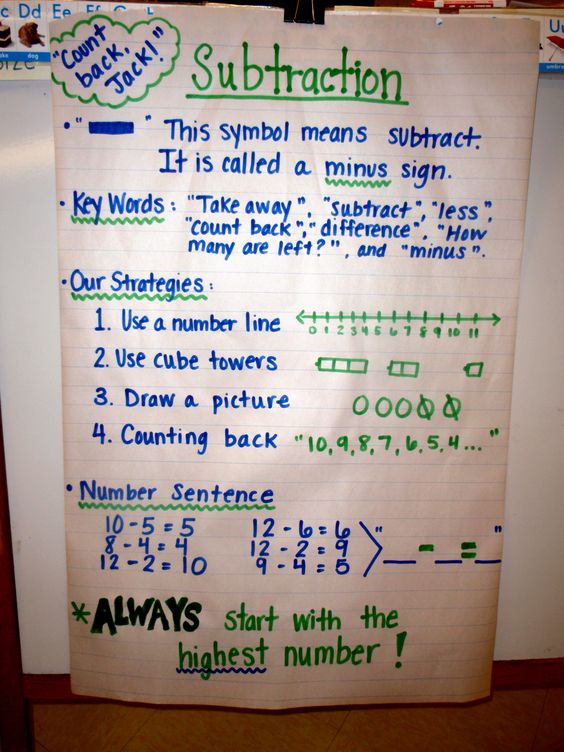 c Dd Ee Ff
dog
Uu
"Count
back,
Jack!"
Subtraction
• "▬" This symbol means subtract.
It is called a minus sign.
• Key Words: "Take away", "subtract", "less",
"count back", "difference", "How
many are left?", and "minus".
• Our Strategies:
1. Use a number line
0 1 2 3 4 5 6 7 8 9 10 11
2. Use cube towers
3. Draw a picture
4. Counting back "10, 9, 8, 7, 6, 5, 4..."
• Number Sentence
10 - 5 = 5 12 - 6 = 6
8 - 4 = 4 12 - 2 = 9 "__ - __ = __"
12 - 2 = 10 9 - 4 = 5
*ALWAYS start with the
highest number!